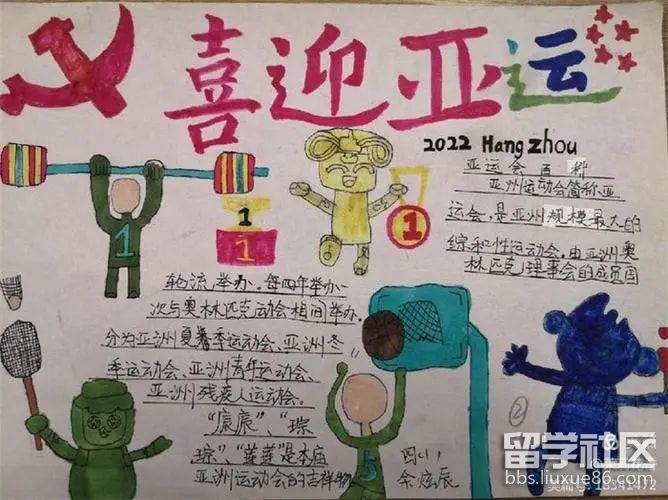 喜迎亚运
2022 Hangzhou
亚运会百科
亚洲运动会简称亚
运会,是亚洲规模最大的
综和性运动会.由亚洲奥
林匹克理事会的成员国
轮流举办.每四年举办一
次与奥林匹克运动会相间举办.
分为亚洲夏季运动会、亚洲冬
季运动会、亚洲青年运动会、
亚洲残疾人运动会。
“宸宸”、“琮
琮”“莲莲”是本届
亚洲运动会的吉祥物
1
1
1
1
5
②
四(1)
余炫辰
留学社区
bbs.liuxue86.com